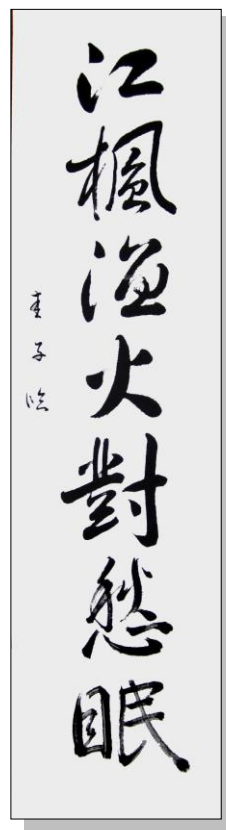 江楓漁火對愁眠
春子臨